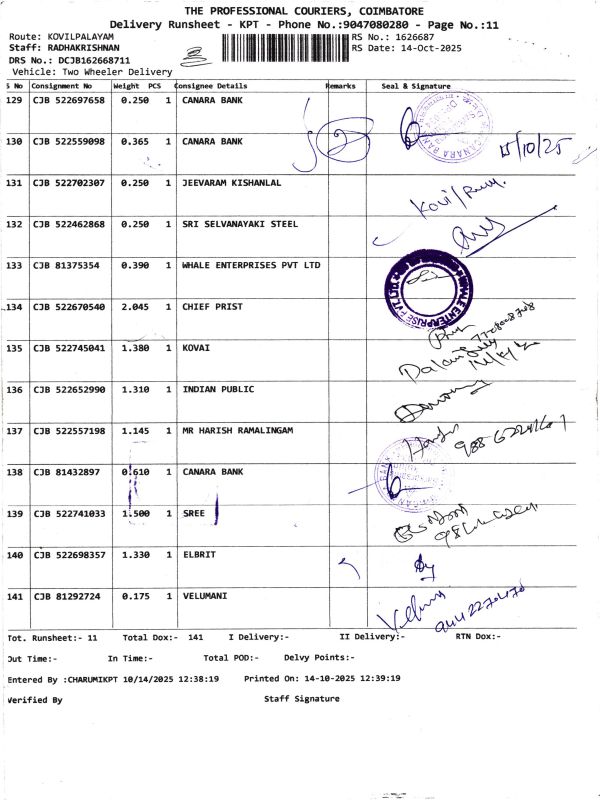 THE PROFESSIONAL COURIERS, COIMBATORE
Delivery Runsheet - KPT - Phone No.:9047080280 - Page No.:11
Route: KOVILPALAYAM RS No.: 1626687
Staff: RADHAKRISHNAN RS Date: 14-Oct-2025
DRS No.: DCJB162668711
Vehicle: Two Wheeler Delivery
S No Consignment No Weight PCS Consignee Details Remarks Seal & Signature
129 CJB 522697658 0.250 1 CANARA BANK
130 CJB 522559098 0.365 1 CANARA BANK 2 15/10/25
131 CJB 522702307 0.250 1 JEEVARAM KISHANLAL
132 CJB 522462868 0.250 1 SRI SELVANAYAKI STEEL
133 CJB 81375354 0.390 1 WHALE ENTERPRISES PVT LTD
134 CJB 522670540 2.045 1 CHIEF PRIST
135 CJB 522745041 1.380 1 KOVAI
136 CJB 522652990 1.310 1 INDIAN PUBLIC
137 CJB 522557198 1.145 1 MR HARISH RAMALINGAM
138 CJB 81432897 0.610 1 CANARA BANK
139 CJB 522741033 1.500 1 SREE
140 CJB 522698357 1.330 1 ELBRIT
141 CJB 81292724 0.175 1 VELUMANI
Tot. Runsheet:- 11 Total Dox:- 141 I Delivery:- II Delivery:- RTN Dox:-
Out Time:- In Time:- Total POD:- Delvy Points:-
Entered By :CHARUMIKPT 10/14/2025 12:38:19 Printed On: 14-10-2025 12:39:19
Verified By Staff Signature